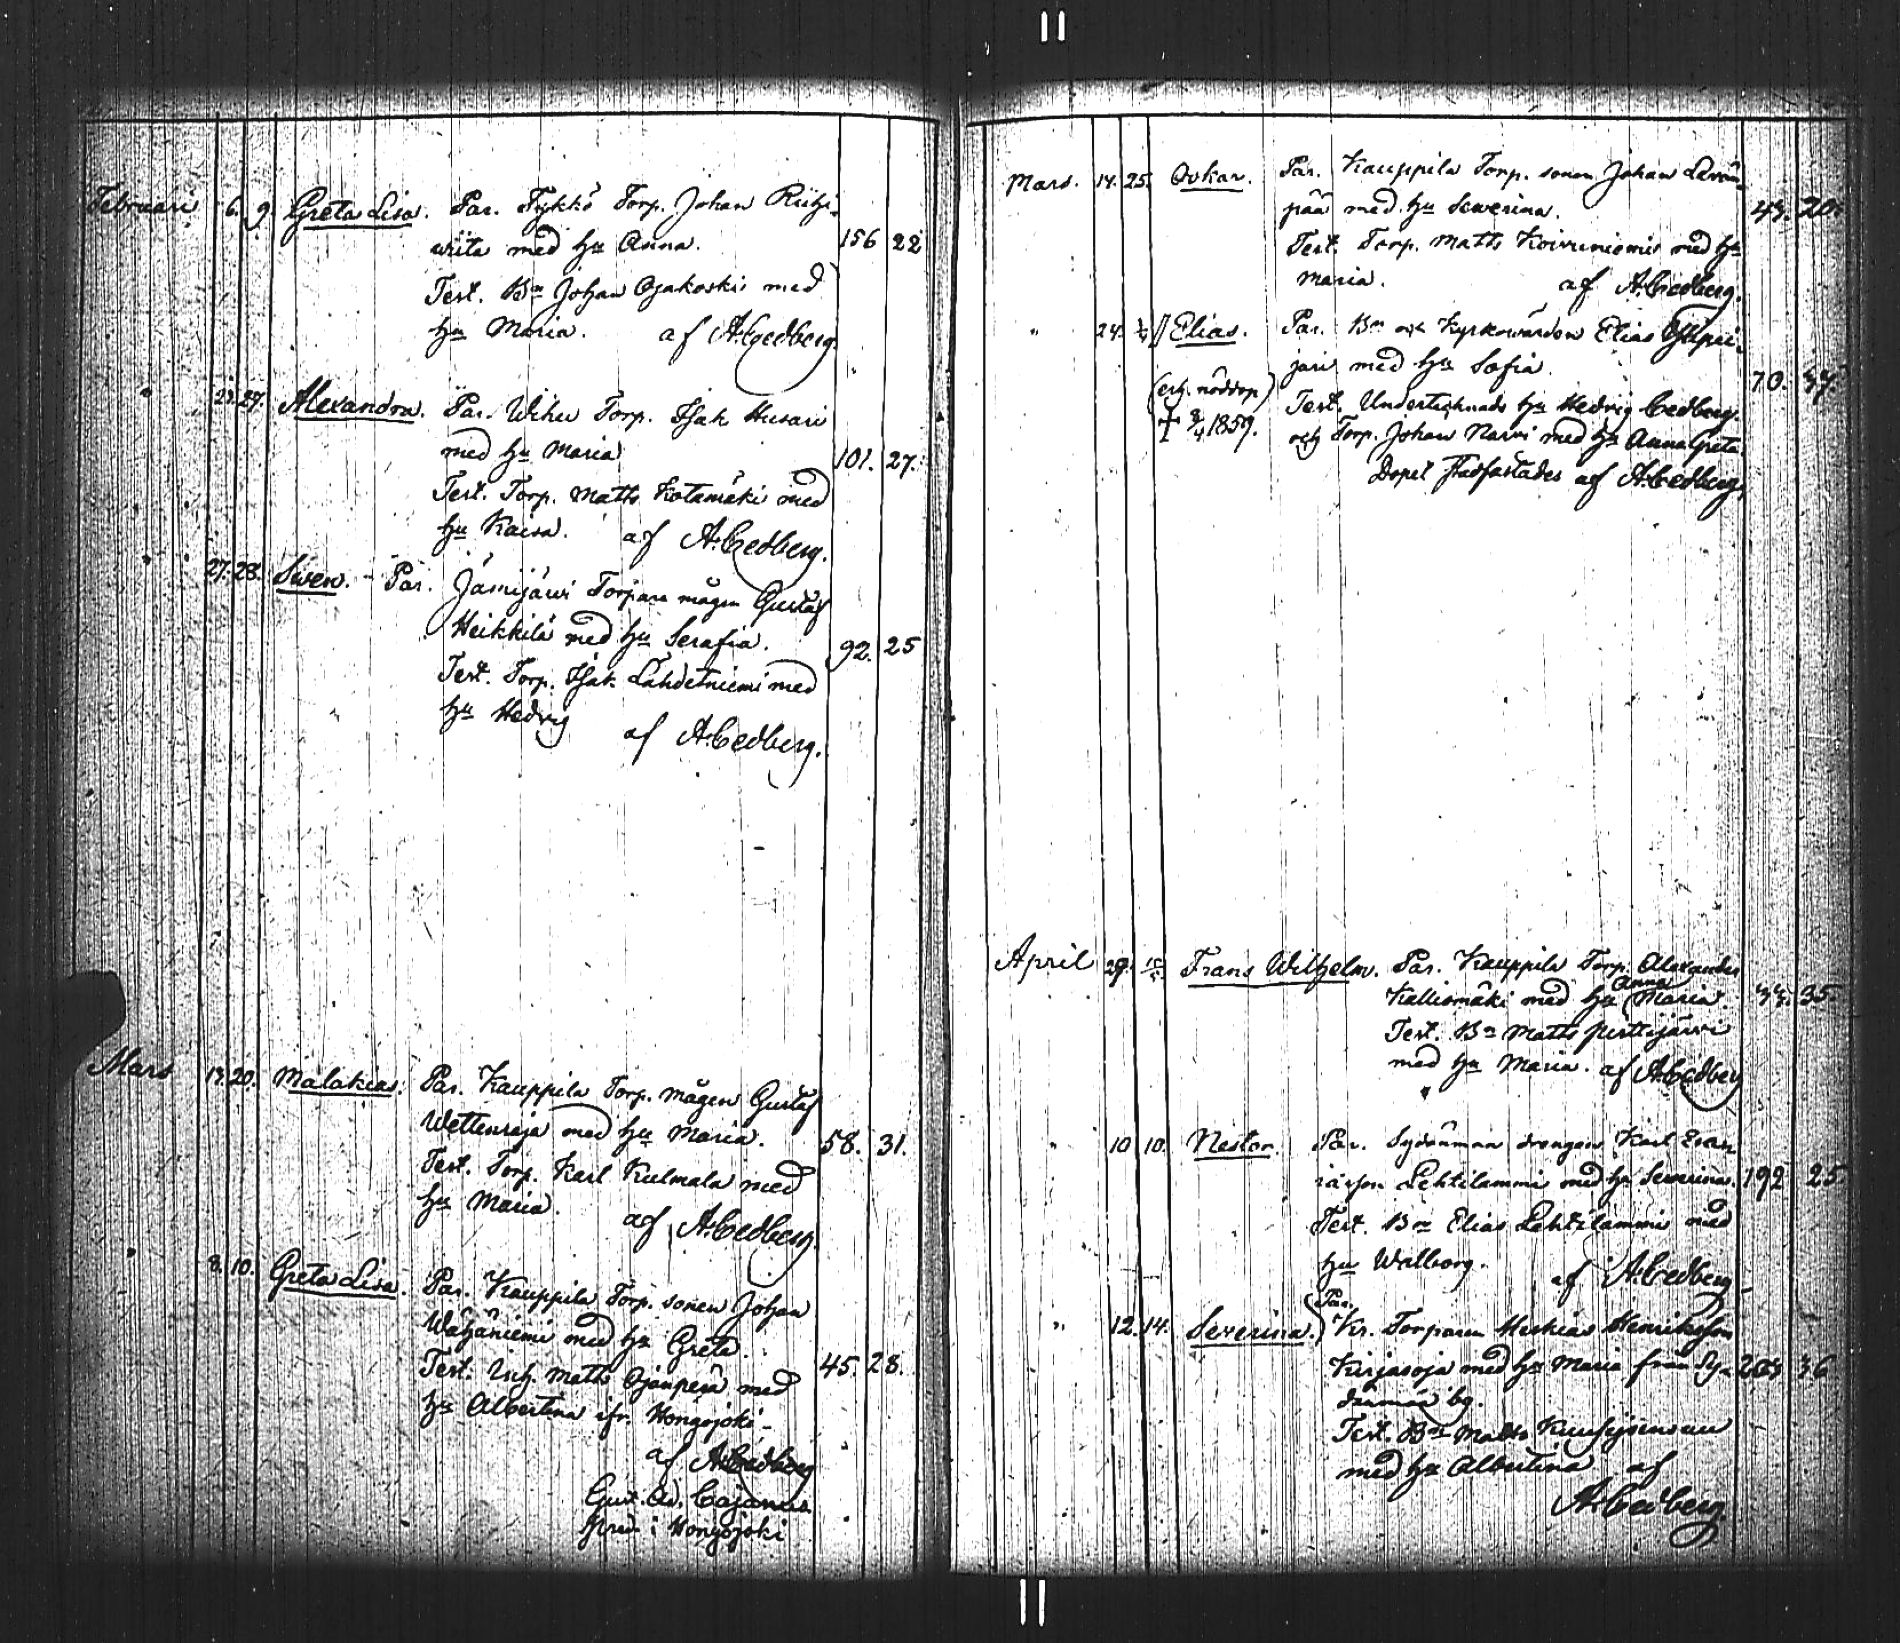 11
Februari 6. 9. Greta Lisa. Par. Tykkö Torp. Johan Riihi-
wiita med hu Anna. 156 22
Test. Bn Johan Ojakoski med
hu Maria. af A. Cedberg.
" 23. 27. Alexandra. Par. Wihu Torp. Isak Husari
med hu Maria 101. 27.
Test. Torp. Matts Kotamäki med
hu Kaisa. af A. Cedberg.
" 27. 28. Swen. Par. Jämijärvi Torpare mågen Gustaf
Heikkilä med hu Serafia. 92. 25
Test. Torp. Isak Lähdetniemi med
hu Hedvig af A. Cedberg.
Mars 19. 20. Malakias. Par. Kauppila Torp. mågen Gustaf
Wettenraja med hu Maria. 58. 31.
Test. Torp. Karl Kulmala med
hu Maria. af A. Cedberg.
" 8. 10. Greta Lisa. Par. Kauppila Torp. sonen Johan
Wähäniemi med hu Greta. 45. 28.
Test. Matts Ojanperä med
hu Albertina ifr. Hongojoki
af A. Cedberg
Gust. Ad. Cajanus
pred. i Hongojoki
Mars. 14. 25. Oskar. Par. Kauppila Torp. sonen Johan Levän-
pää med hu Sewerina. 43. 20.
Test. Torp. Matts Koivuniemi med hu
Maria. af A. Cedberg.
" 24. Elias. Par. Bn och Kyrkowärden Elias Ylipii-
jari med hu Sofia. 70. 44.
(erh. nöddop) Test. Undertecknads hu Hedvig Cedberg.
† 3/4 1859. och Torp. Johan Narvi med hu Anna Greta
Dopet stadfästades af A. Cedberg.
April 29. Frans Wilhelm. Par. Kauppila Torp. Alexander
Kalliomäki med hu Anna Maria. 35.
Test. Bn Matts Perttijärvi
med hu Maria. af A. Cedberg
" 10 10. Nestor. Par. Sydänmaa drengen Karl Esai-
iasson Lehtilammi med hu Sewerina. 192 25.
Test. Bn Elias Lehtilammi med
hu Walborg. af A. Cedberg
Par.
" 12. 14. Severina. Kr. Torparen Heskias Henriksson
Kirjasoja med hu Maria från Sy- 36
dänmaa by.
Test. Bn Matts
med hu Albertina af
A. Cedberg.
11